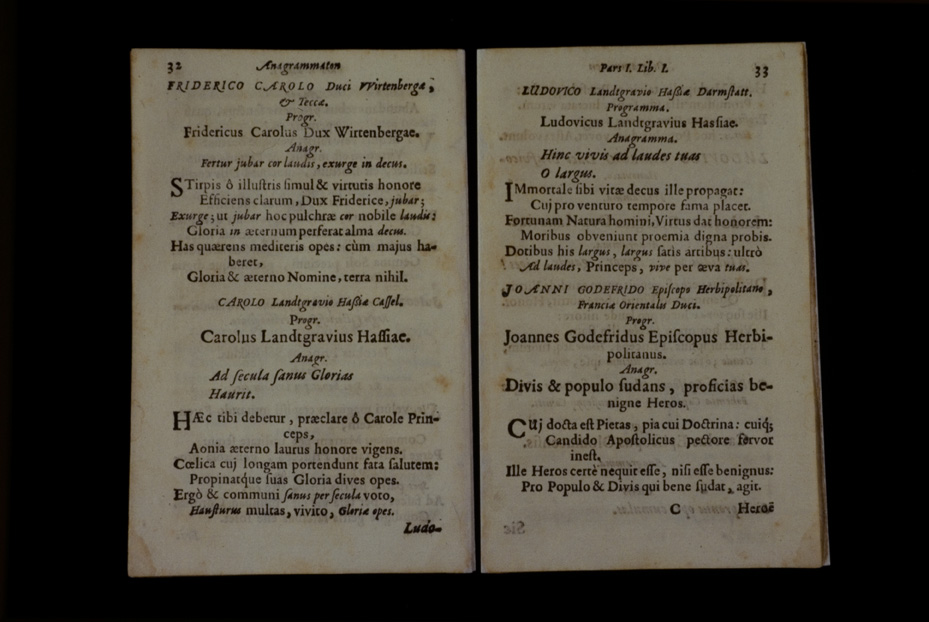 32 Anagrammaton
FRIDERICO CAROLO Duci VVirtenbergæ,
& Teccæ.
Progr.
Fridericus Carolus Dux Wirtenbergae.
Anagr.
Fertur jubar cor laudis, exurge in decus.
STirpis ô illuſtris ſimul & virtutis honore
Efficiens clarum, Dux Friderice, jubar;
Exurge; ut jubar hoc pulchræ cor nobile laudis:
Gloria in æternum perferat alma decus.
Has quærens mediteris opes: cùm majus ha-
beret,
Gloria & æterno Nomine, terra nihil.
CAROLO Landtgravio Haſſiæ Caſſel.
Progr.
Carolus Landtgravius Haſſiae.
Anagr.
Ad ſecula ſanus Glorias
Haurit.
HÆc tibi debetur, præclare ô Carole Prin-
ceps,
Aonia æterno laurus honore vigens.
Cœlica cuj longam portendunt fata ſalutem:
Propinatq́ue ſuas Gloria dives opes.
Ergò & communi ſanus per ſecula voto,
Hauſturus multas, vivito, Gloriæ opes.
Ludo-
Pars I. Lib. I. 33
LUDOVICO Landtgravio Haſſiæ Darmſtatt.
Programma.
Ludovicus Landtgravius Haſſiae.
Anagramma.
Hinc vivis ad laudes tuas
O largus.
IMmortale ſibi vitæ decus ille propagat:
Cuj pro venturo tempore fama placet.
Fortunam Natura homini, Virtus dat honorem:
Moribus obveniunt proemia digna probis.
Dotibus his largus, largus ſatis artibus: ultrò
Ad laudes, Princeps, vive per œva tuas.
JOANNI GODEFRIDO Epiſcopo Herbipolitano,
Franciæ Orientalis Duci.
Progr.
Joannes Godefridus Epiſcopus Herbi-
politanus.
Anagr.
Divis & populo ſudans, proficias be-
nigne Heros.
CUj docta eſt Pietas, pia cui Doctrina: cuiq́;
Candido Apoſtolicus pectore fervor
ineſt.
Ille Heros certè nequit eſſe, niſi eſſe benignus:
Pro Populo & Divis qui bene ſudat, agit.
C Heroë